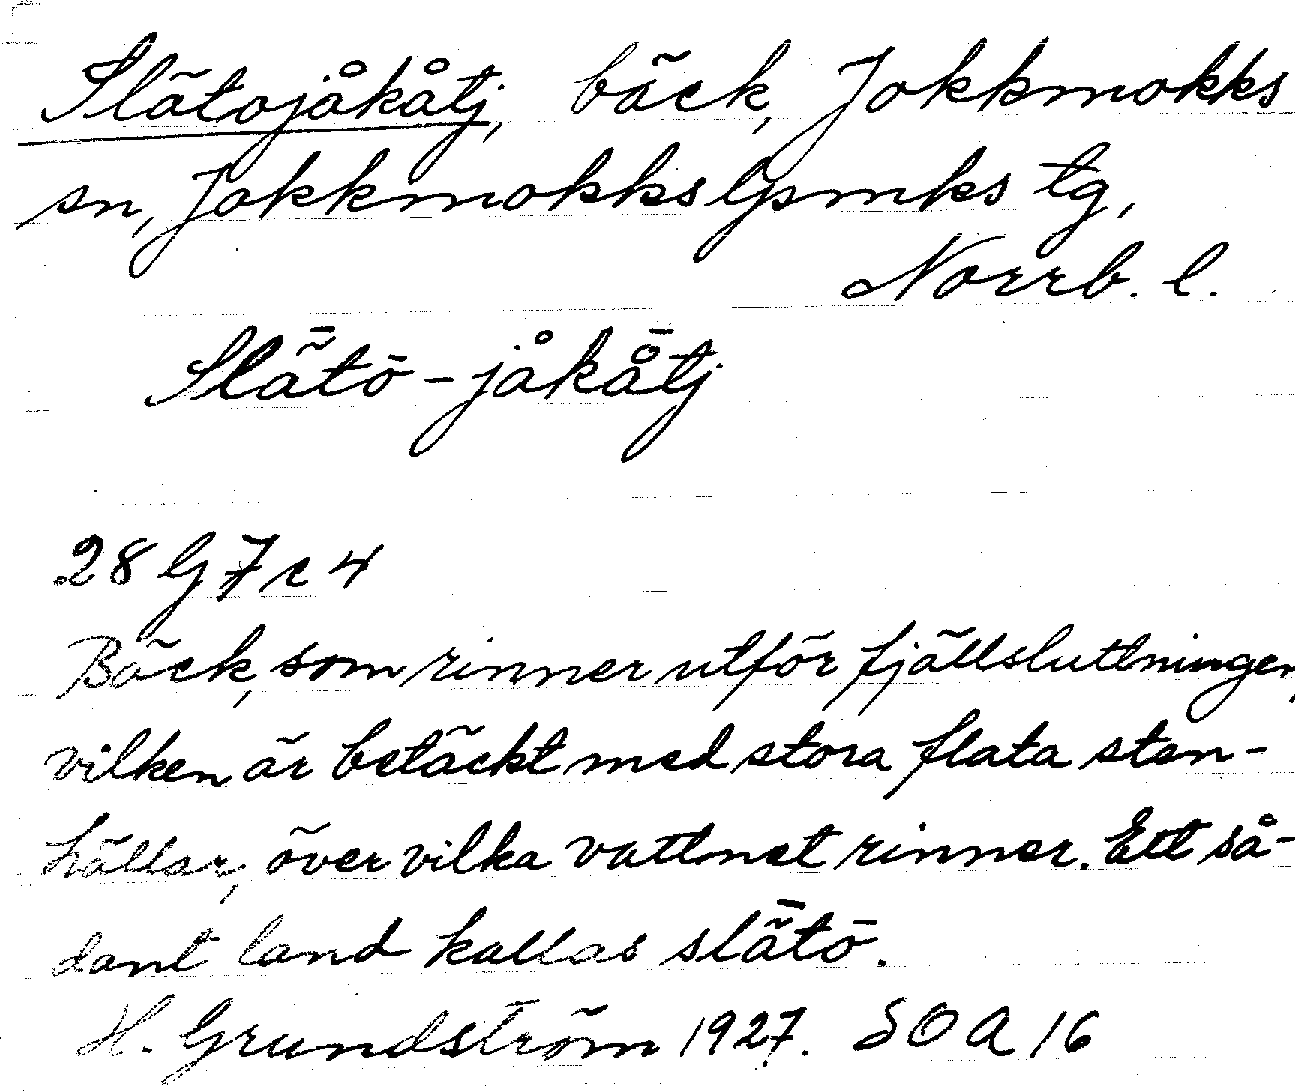 Slätojåkåtj, bäck, Jokkmokks
sn, Jokkmokks lpmks tg,
Norrb. l.
Slǟtō-jåkå̄tj
28 G 7 c 4
Bäck, som rinner utför fjällsluttningen,
vilken är betäckt med stora flata sten-
hällar, över vilka vattnet rinner. Ett så-
dant land kallas slǟtō.
H. Grundström 1927. SOA 16